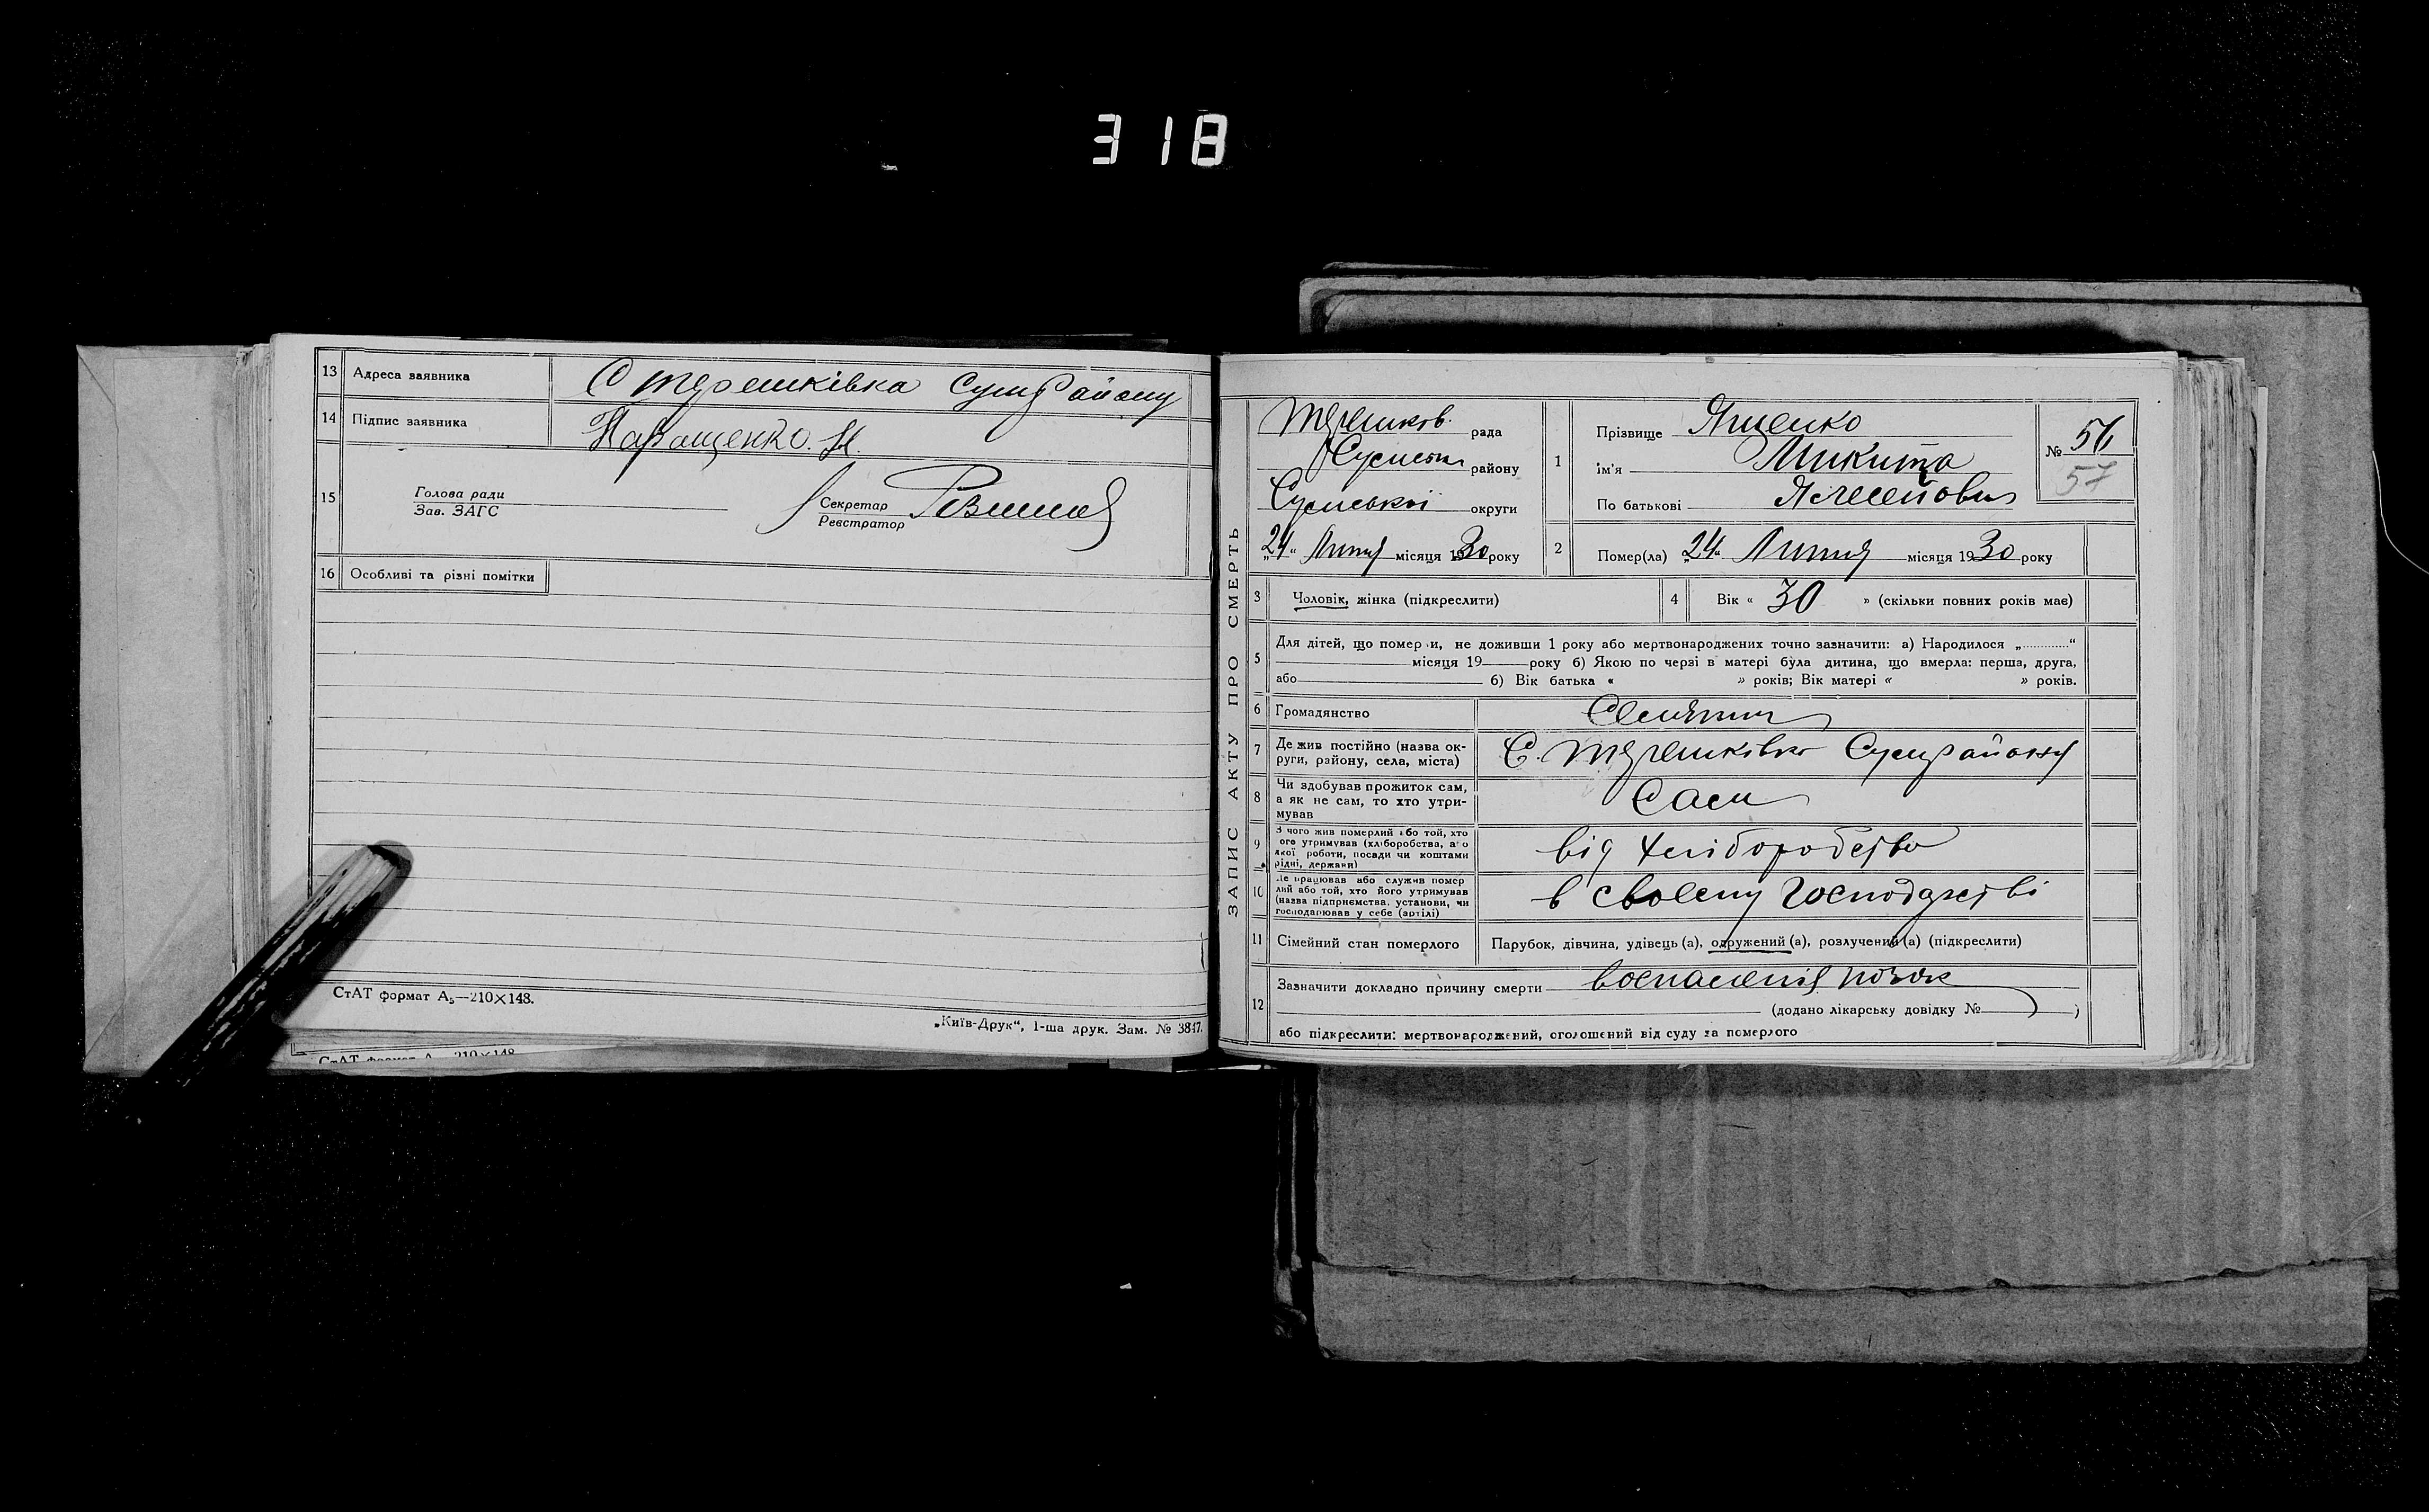 318
13 Адреса заявника С Терешківка Сум району
14 Підпис заявника Паращенко. Н.
15 Голова ради
Зав. ЗАГС
Секретар
Реєстратор
16 Особливі та різні помітки
СтАТ формат А5—210×148.
„Київ-Друк“, 1-ша друк. Зам. № 3847.
СтАТ формат А 210×148
ЗАПИС АКТУ ПРО СМЕРТЬ
Терешков. рада
Сумськ району
Сумської округи
„24“ Липня місяця 1930 року
1 Прізвище Ященко
ім'я Микита
По батькові
№ 56
57
2 Помер(ла) „24“ Липня місяця 1930 року
3 Чоловік, жінка (підкреслити)
4 Вік « 30 » (скільки повних років має)
5 Для дітей, що померли, не доживши 1 року або мертвонароджених точно зазначити: а) Народилося „............“
місяця 19 року б) Якою по черзі в матері була дитина, що вмерла: перша, друга,
або б) Вік батька « » років; Вік матері « » років.
6 Громадянство Селянин
7 Де жив постійно (назва ок-
руги, району, села, міста) С. Терешківка Сум району
8 Чи здобував прожиток сам,
а як не сам, то хто утри-
мував Сам
9 З чого жив померлий або той, хто
ого утримував (хліборобства, а о
якої роботи, посади чи коштами
рідні, держави) від хліборобства
10 Де працював або служив помер
лий або той, хто його утримував
(назва підприємства, установи, чи
господарював у себе (артілі) в своєму господарстві
11 Сімейний стан померлого Парубок, дівчина, удівець (а), одружений (а), розлучений (а) (підкреслити)
12 Зазначити докладно причину смерти воспаленія почок
(додано лікарську довідку № )
або підкреслити: мертвонароджений, оголошений від суду за померлого